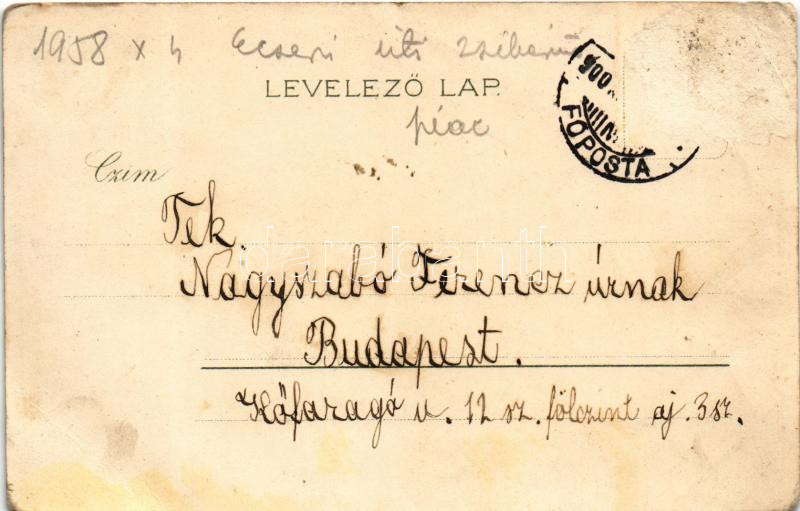 1958 X 4 Ecseri úti
LEVELEZŐ LAP.
piac
900
FŐPOSTA
Czim
Tek.
darabanth
Nagyszabó Ferencz úrnak
Budapest.
Kőfaragó u. 12 sz. földszint aj. 3 sz.